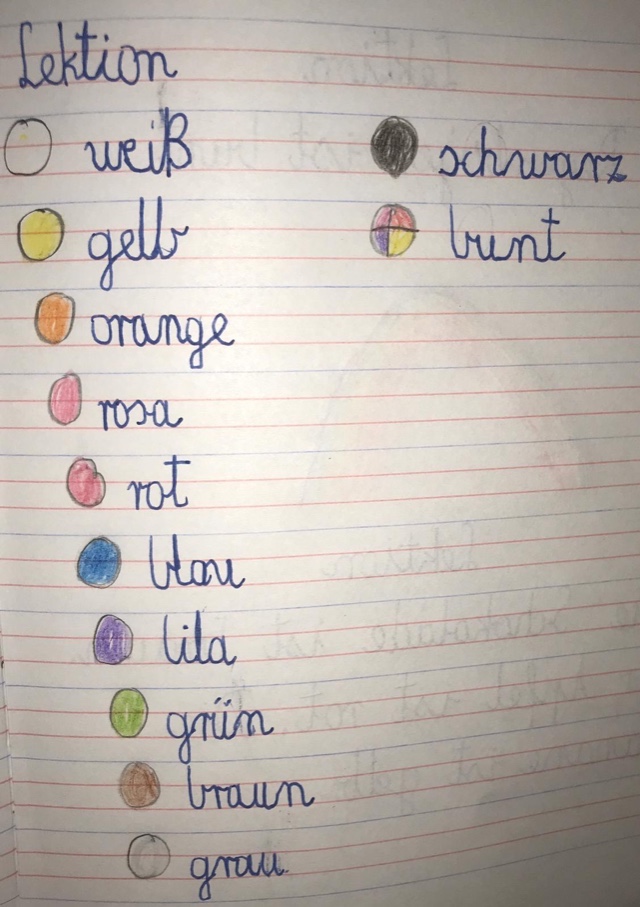 Lektion
weiß
schwarz
gelb
bunt
orange
rosa
rot
blau
lila
grün
braun
grau